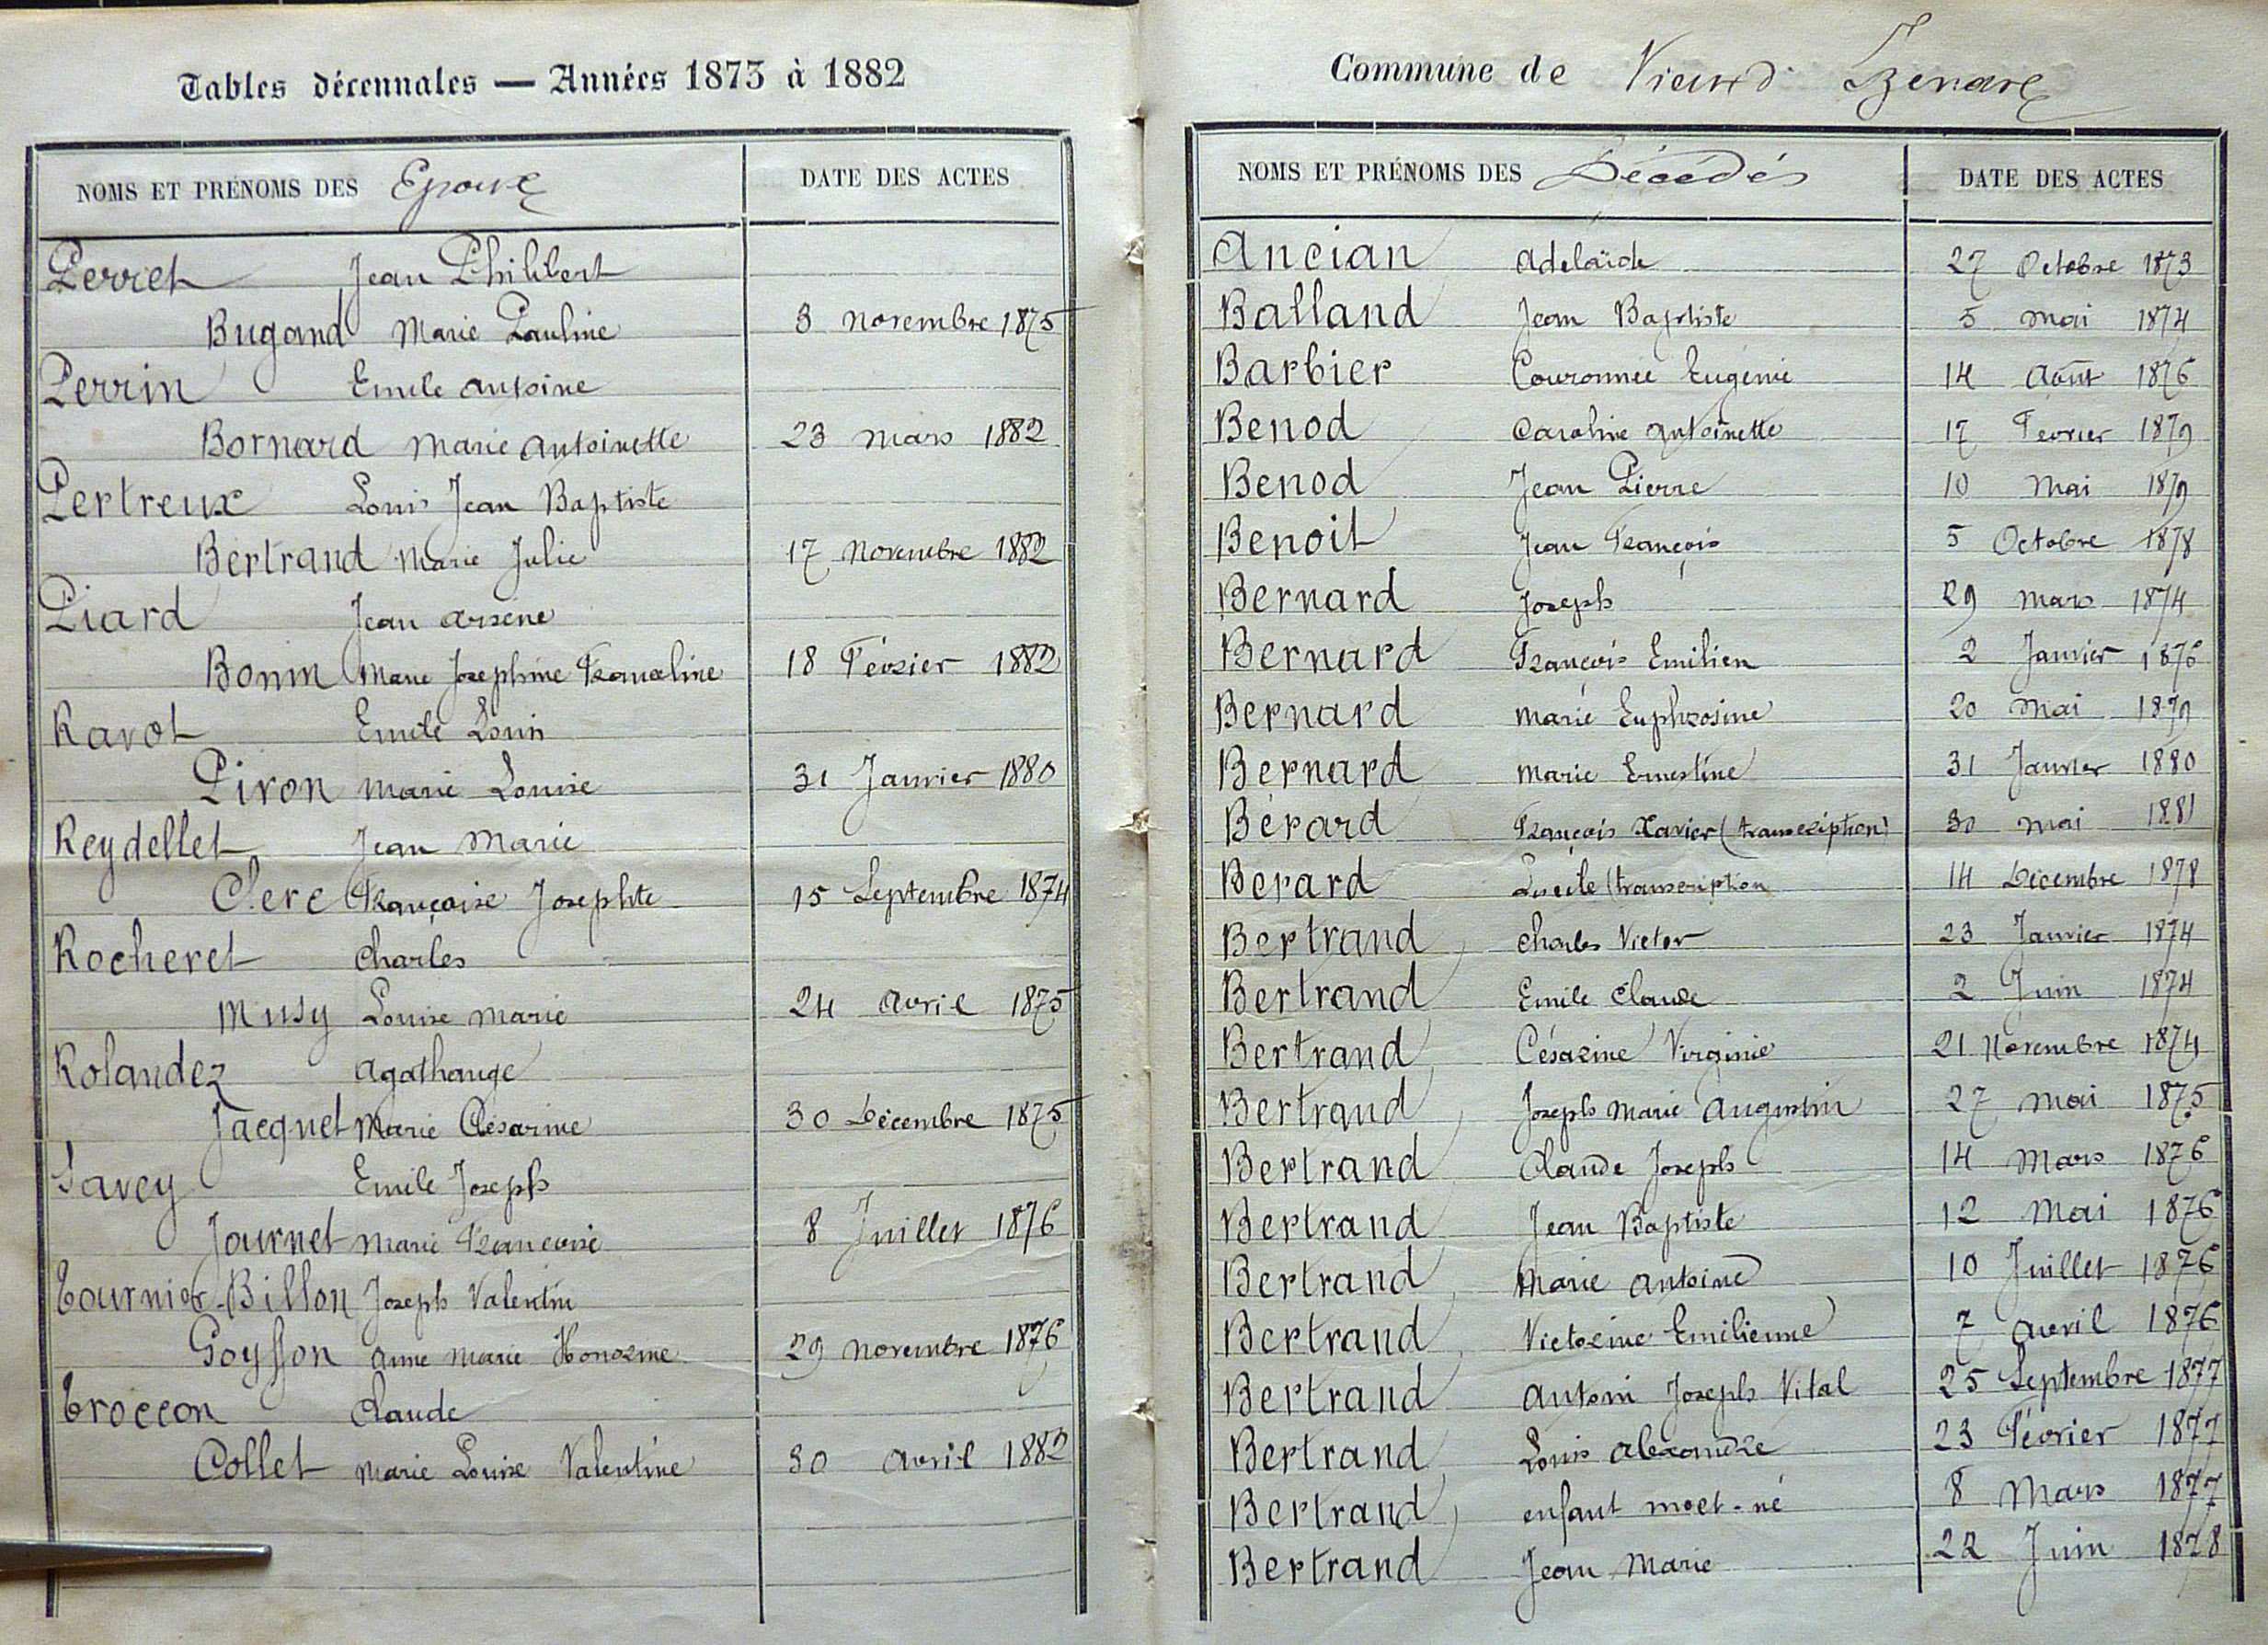 Tables décennales — Années 1873 à 1882
NOMS ET PRÉNOMS DES Epoux DATE DES ACTES
Perret Jean Philibert
Bugand Marie Pauline 3 novembre 1875
Perrin Emile antoine
Bornard Marie antoinette 23 mars 1882
Pertreux Louis Jean Baptiste
Bertrand Marie Julie 17 novembre 1882
Piard Jean arsene
Bonin Marie Josephine Francéline 18 Février 1882
Ravot Emile Louis
Piron Marie Louise 31 Janvier 1880
Reydellet Jean Marie
Clerc Françoise Josephte 15 Septembre 1874
Rocheret Charles
Musy Louise Marie 24 avril 1875
Rolandez agathange
Jacquet Marie Césarine 30 Décembre 1875
Savey Emile Joseph
Journet Marie Françoise 8 Juillet 1876
Tournier-Billon Joseph Valentin
Goysson anne Marie Honorine 29 novembre 1876
Troccon Claude
Collet Marie Louise Valentine 30 avril 1882
Commune de Vieu d' Izenave
NOMS ET PRÉNOMS DES Décédés DATE DES ACTES
Ancian Adelaïde 27 Octobre 1873
Balland Jean Baptiste 5 mai 1874
Barbier Couronnée Eugénie 14 août 1876
Benod Caroline antoinette 17 Février 1879
Benod Jean Pierre 10 Mai 1879
Benoit Jean François 5 Octobre 1878
Bernard Joseph 29 mars 1874
Bernard François Emilien 2 Janvier 1876
Bernard Marie Euphrosine 20 Mai 1879
Bernard Marie Ernestine 31 Janvier 1880
Bérard François Xavier (transcription) 30 mai 1881
Berard (transcription 14 Décembre 1878
Bertrand Charles Victor 23 Janvier 1874
Bertrand Emile Claude 2 Juin 1874
Bertrand Césarine Virginie 21 Novembre 1874
Bertrand Joseph Marie Augustin 27 mai 1875
Bertrand Claude Joseph 14 Mars 1876
Bertrand Jean Baptiste 12 Mai 1876
Bertrand Marie antoine 10 Juillet 1876
Bertrand Victorine Emilienne 7 avril 1876
Bertrand antoni Joseph Vital 25 Septembre 1877
Bertrand Louis alexandre 23 Février 1877
Bertrand enfant mort-né 8 Mars 1877
Bertrand Jean Marie 22 Juin 1878